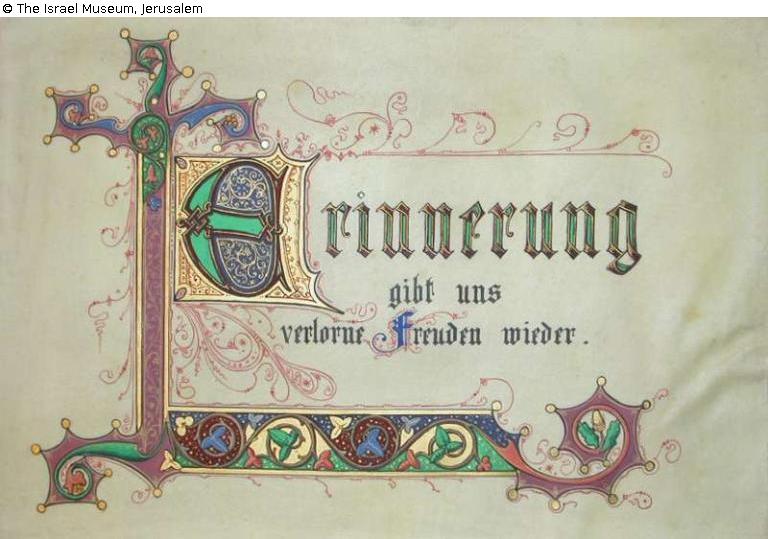 © The Israel Museum, Jerusalem
Erinnerung
gibt uns
verlorne Freuden wieder.